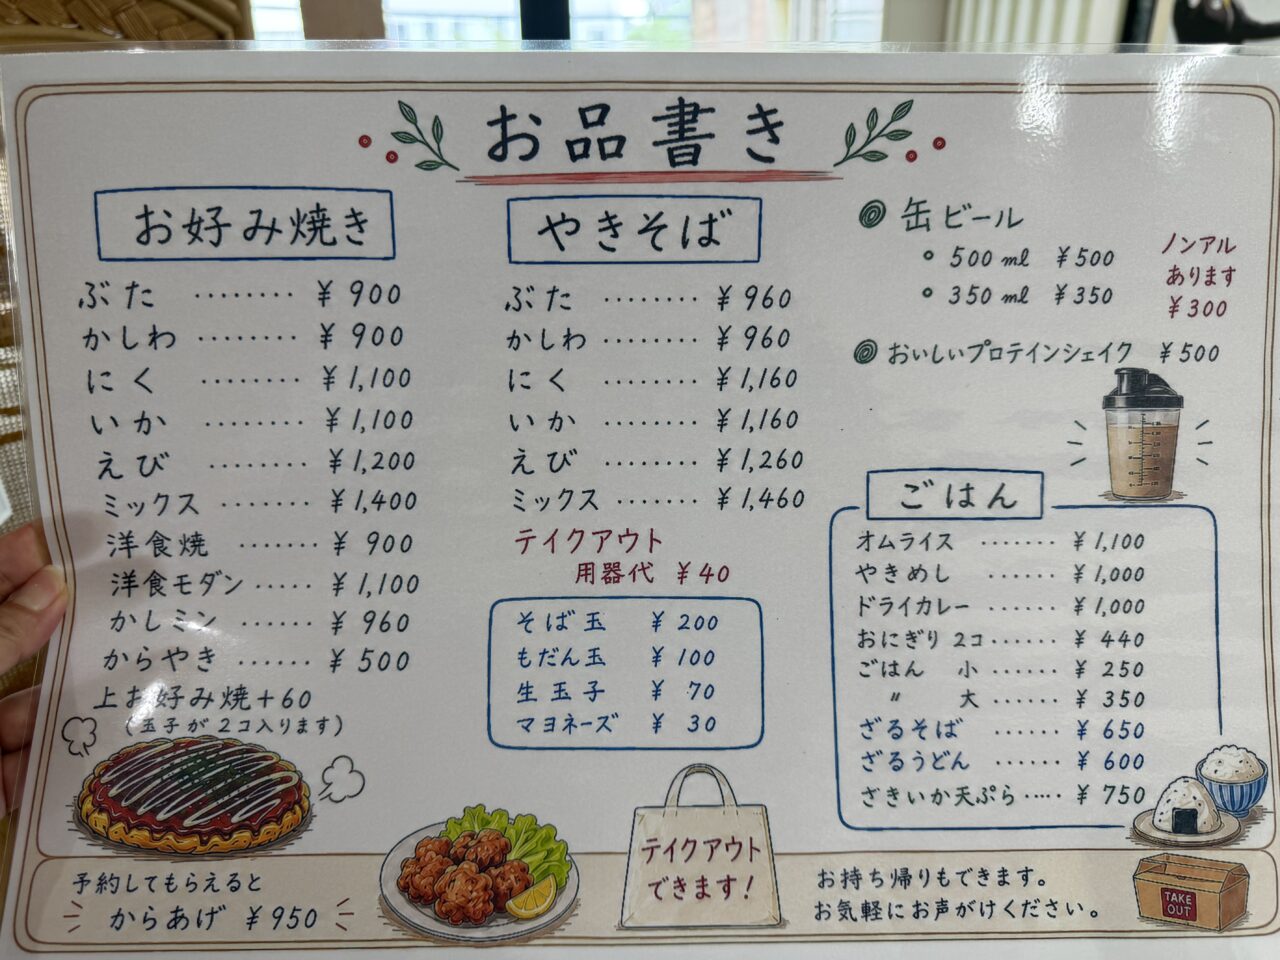 お品書き
お好み焼き
ぶた ········ ¥900
かしわ ········ ¥900
にく ········ ¥1,100
いか ········ ¥1,100
えび ········ ¥1,200
ミックス ······· ¥1,400
洋食焼 ······· ¥900
洋食モダン ····· ¥1,100
かしミン ······ ¥960
からやき ······ ¥500
上お好み焼+60
(玉子が2コ入ります)
やきそば
ぶた ········ ¥960
かしわ ········ ¥960
にく ········ ¥1,160
いか ········ ¥1,160
えび ········ ¥1,260
ミックス ······· ¥1,460
テイクアウト
用器代 ¥40
そば玉 ¥200
もだん玉 ¥100
生玉子 ¥70
マヨネーズ ¥30
缶ビール
500ml ¥500
350ml ¥350
ノンアル
あります
¥300
おいしいプロテインシェイク ¥500
ごはん
オムライス ······· ¥1,100
やきめし ······ ¥1,000
ドライカレー ······ ¥1,000
おにぎり 2コ ······ ¥440
ごはん 小 ······ ¥250
〃 大 ······ ¥350
ざるそば ······ ¥650
ざるうどん ······ ¥600
さきいか天ぷら ····· ¥750
予約してもらえると
からあげ ¥950
テイクアウト
できます!
お持ち帰りもできます。
お気軽にお声がけください。
TAKE
OUT